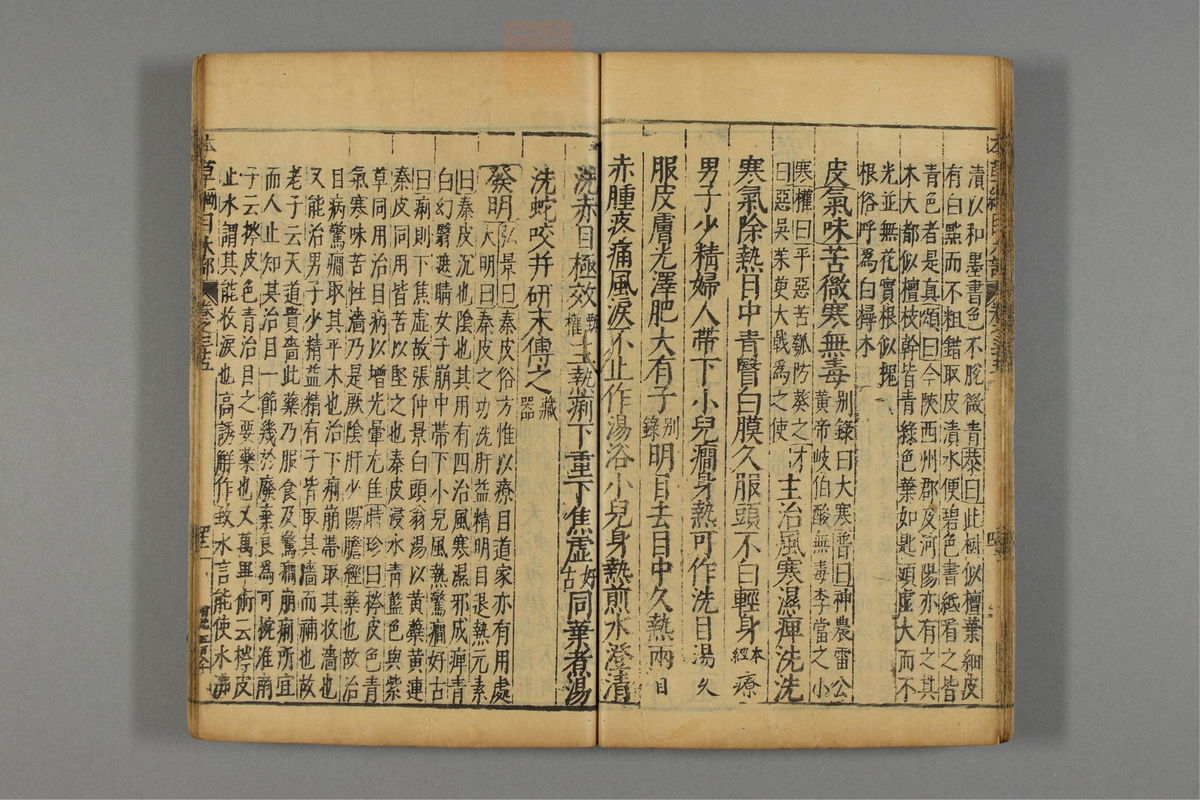 漬以和墨書色不脫微青恭曰此樹似檀葉細皮
有白點而不粗錯取皮漬水便碧色書紙看之皆
青色者是真頌曰今陝西州郡及河陽亦有之其
木大都似檀枝幹皆青綠色葉如匙頭虛大而不
光並無花實根似槐
根俗呼為白樳木
皮氣味苦微寒無毒別錄曰大寒普曰神農雷公
黃帝岐伯酸無毒李當之小
寒權曰平惡苦瓠防葵之才
曰惡吳茱萸大戟為之使
主治風寒濕痺洗洗
寒氣除熱目中青瞖白膜久服頭不白輕身本經療
男子少精婦人帶下小兒癎身熱可作洗目湯久
服皮膚光澤肥大有子別錄明目去目中久熱兩目
赤腫疼痛風淚不止作湯浴小兒身熱煎水澄清
洗赤目極效甄權主熱痢下重下焦虛好古同葉煮湯
洗蛇咬并研末傅之藏器
發明弘景曰秦皮俗方惟以療目道家亦有用處
大明曰秦皮之功洗肝益精明目退熱元素
曰秦皮沉也陰也其用有四治風寒濕邪成痺青
白幻翳遮睛女子崩中帶下小兒風熱驚癎好古
曰痢則下焦虛故張仲景白頭翁湯以黃蘗黃連
秦皮同用皆苦以堅之也秦皮浸水青藍色與紫
草同用治目病以增光暈尤佳時珍曰梣皮色青
氣寒味苦性濇乃是厥陰肝少陽膽經藥也故治
目病驚癎取其平木也治下痢崩帶取其收濇也
又能治男子少精益精有子皆取其濇而補也故
老子云天道貴嗇此藥乃服食及驚癎崩痢所宜
而人止知其治目一節幾於廢棄良為可惋淮南
子云梣皮色青治目之要藥也又萬畢術云梣皮
止水謂其能收淚也高誘解作致水言能使水沸
本草綱目木部
卷之三十五